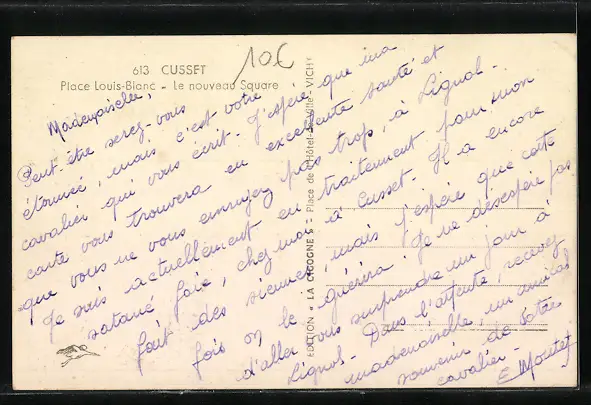 10€
613 CUSSET
Place Louis-Blanc - le nouveau Square
EDITION "LA CIGOGNE" - Place de l'Hôtel-de-Ville - VICHY
Mademoiselle,
Peut-être serez-vous
étonnée, mais c'est votre
cavalier qui vous écrit. J'espère que ma
carte vous trouvera en excellente santé et
que vous ne vous ennuyez pas trop, à Lignol.
Je suis actuellement en traitement pour mon
satané foie, chez moi à Cusset. Il a encore
fait des siennes, mais j'espère que cette
fois on le guérira. Je ne désespère pas
d'aller vous surprendre un jour à
Lignol. Dans l'attente, recevez
mademoiselle, un amical
souvenir de votre
cavalier.
E Moutet